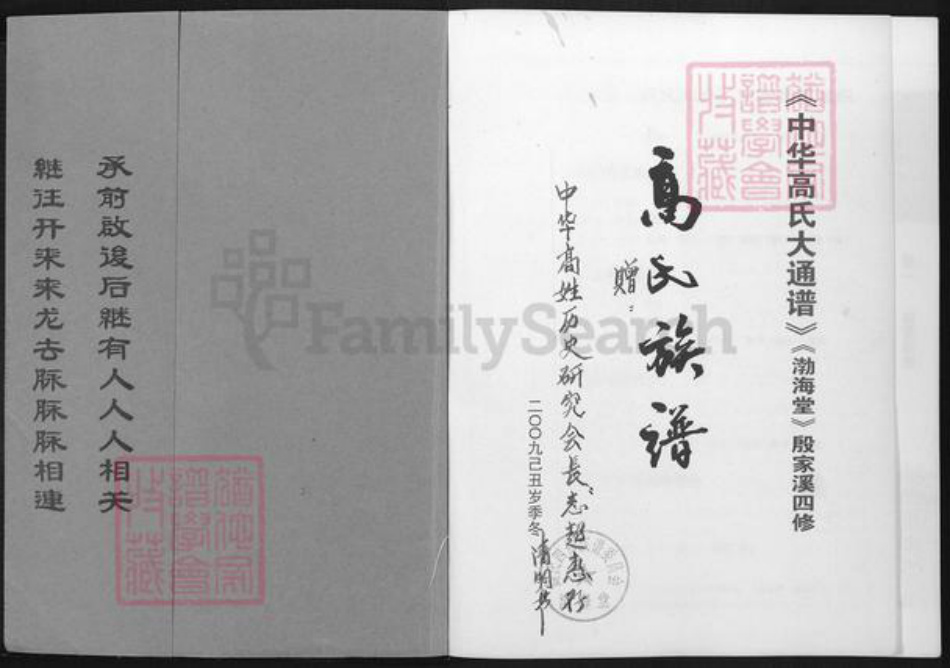 《中华高氏大通谱》《渤海堂》殷家溪四修
高氏族谱
赠：
中华高姓历史研究会会长：志超惠存
二〇〇九己丑岁季冬清明书
承前啟後后继有人人人相关
继往开来来龙去脉脉脉相連
FamilySearch